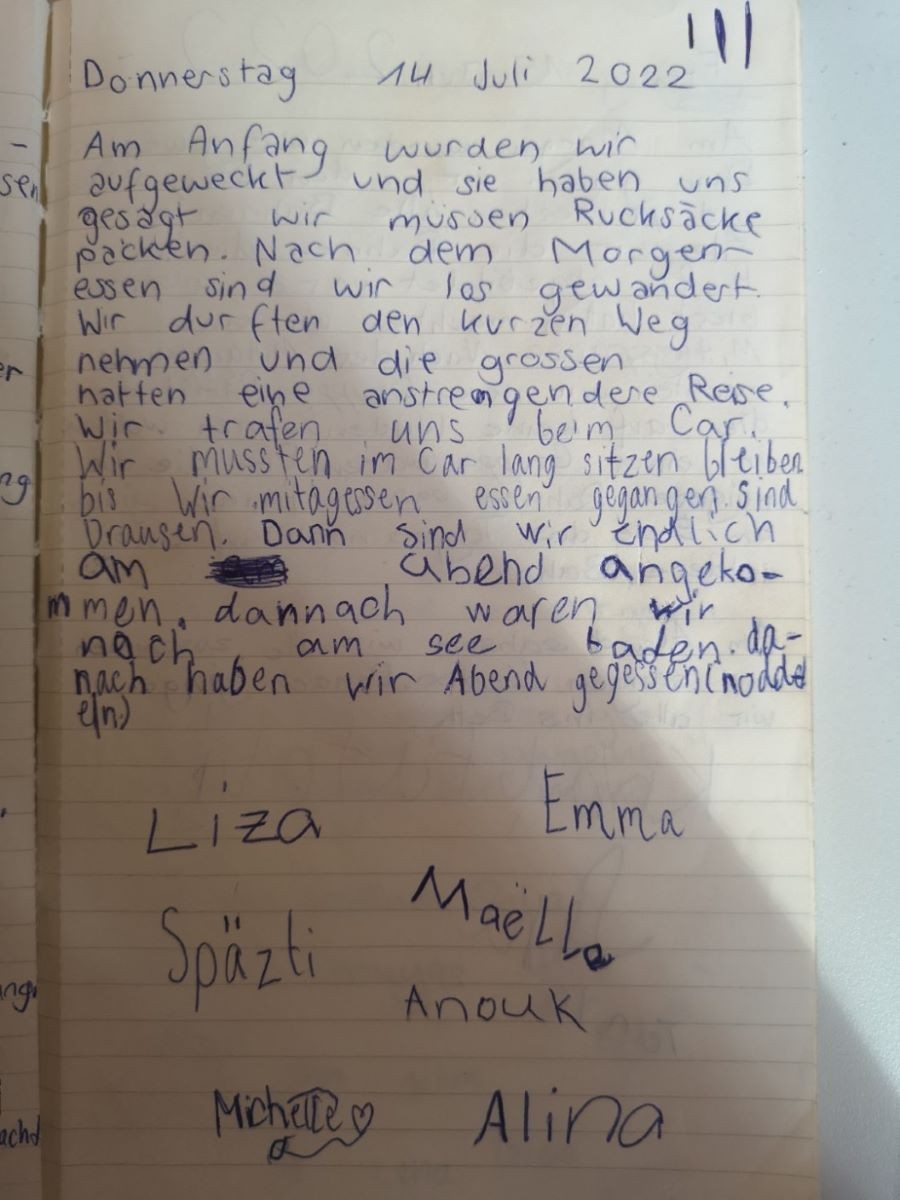 Donnerstag 14 Juli 2022
Am Anfang wurden wir
aufgeweckt und sie haben uns
gesagt wir müssen Rucksäcke
packen. Nach dem Morgen-
essen sind wir los gewandert.
Wir durften den kurzen Weg
nehmen und die grossen
hatten eine anstrengendere Reise.
Wir trafen uns beim Car.
Wir mussten im Car lang sitzen bleiben
bis wir mitagessen essen gegangen sind
Drausen. Dann sind wir endlich
am abend angeko-
mmen. dannach waren wir
noch am see baden. da-
nach haben wir Abend gegessen (nodd
eln)
Liza
Emma
Maëlla
Späzti
Anouk
Michelle ♡
Alina